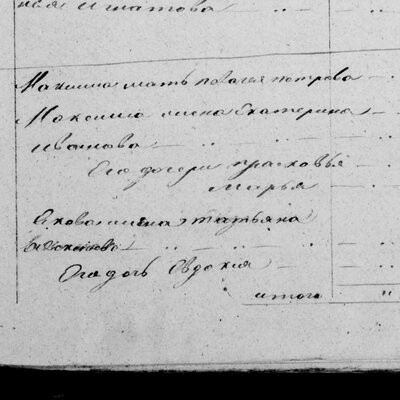 Игнатова
Максима мать Пелагея Петрова
Максима жена Екатерина
Иванова
Его дочери Прасковья
Марья
Якова жена Татьяна
Его дочь Евдокия
итого